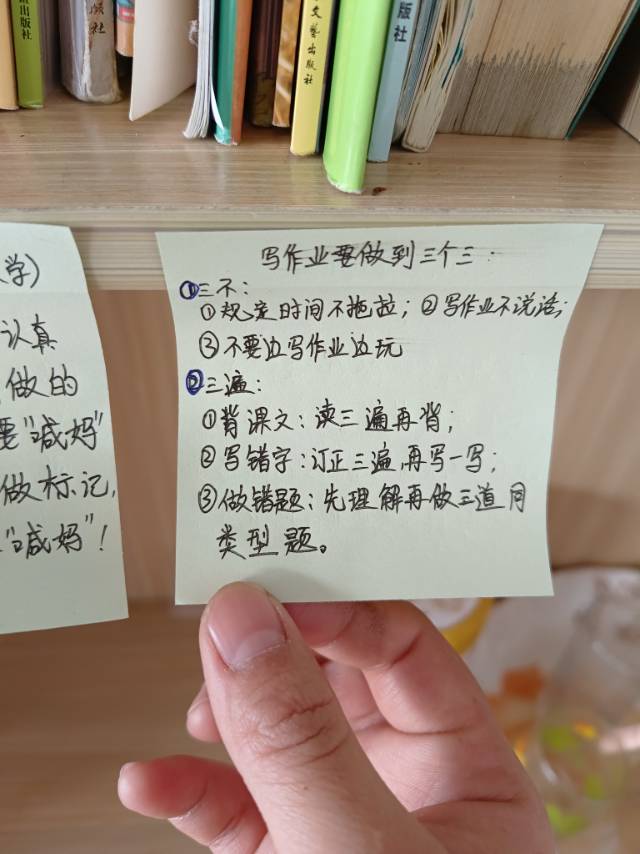 出版社
社
文艺出版社
版社
学)
认真
做的
要“喊妈”
做标记,
“喊妈”!
写作业要做到三个三:
①三不:
①规定时间不拖拉;②写作业不说话;
③不要边写作业边玩
②三遍:
①背课文:读三遍再背;
②写错字:订正三遍,再写一写;
③做错题:先理解再做三道同
类型题。